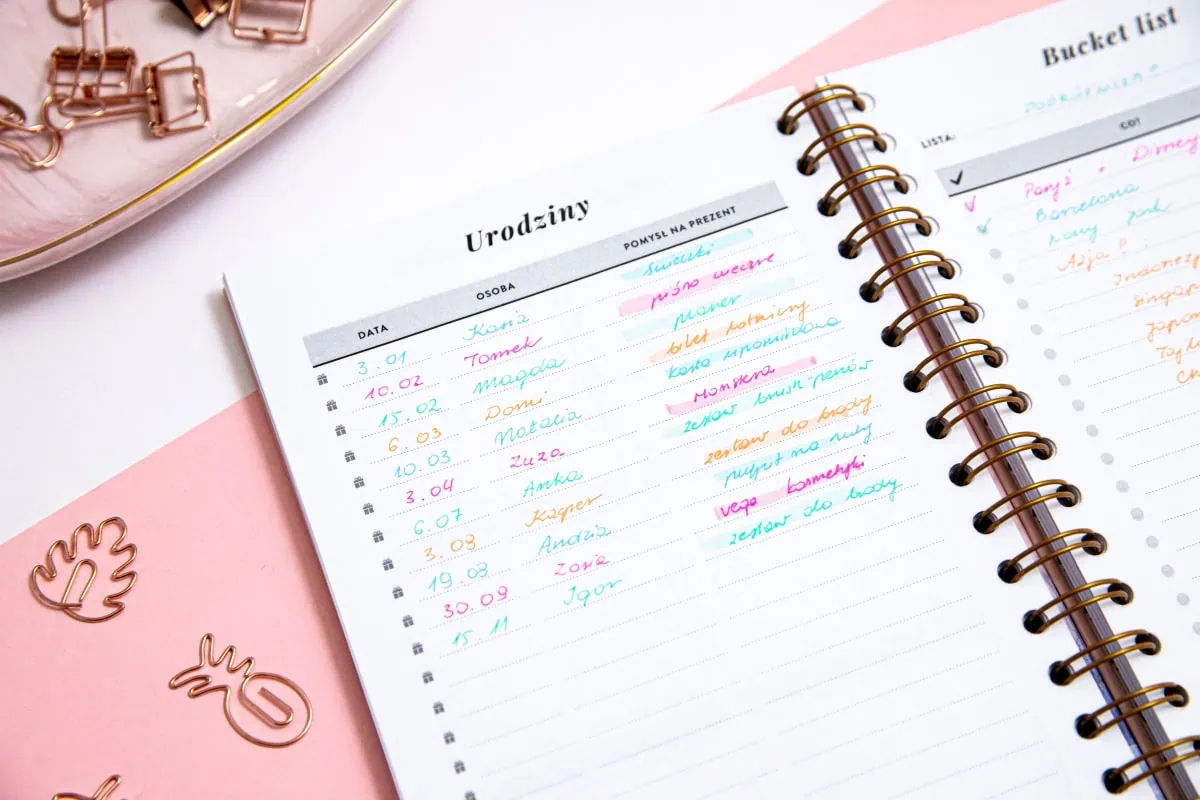 Urodziny
DATA OSOBA POMYSŁ NA PREZENT
3.01 Kasia świeczki
10.02 Tomek pióro wieczne
15.02 Magda planer
6.03 Domi bilet lotniczy
10.03 Natalia karta upominkowa
3.04 Zuza monstera
6.07 Anka zestaw brush-penów
3.08 Kacper zestaw do brody
19.08 Andzia pulpit na nuty
30.09 Zosia vege kosmetyki
15.11 Igor zestaw do brody
Bucket list
LISTA: PODRÓŻNICZA
CO?
Paryż + Disney
Barcelona
Nowy Jork
Azja
Indonezj
Singap
Japo
Tajl